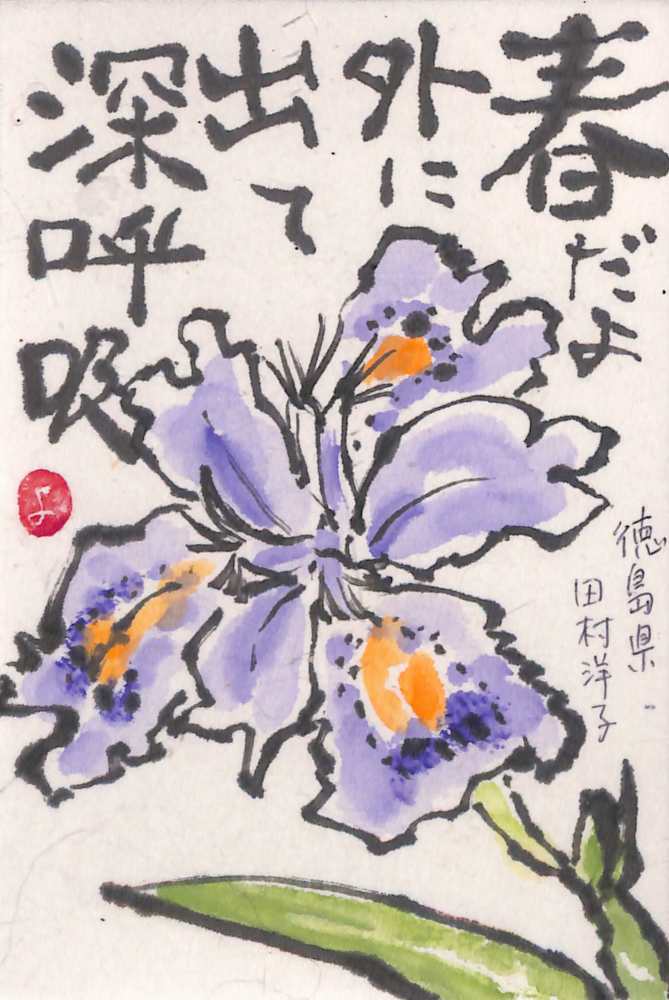 春だよ
外に
出て
深呼吸
よ
徳島県
田村洋子